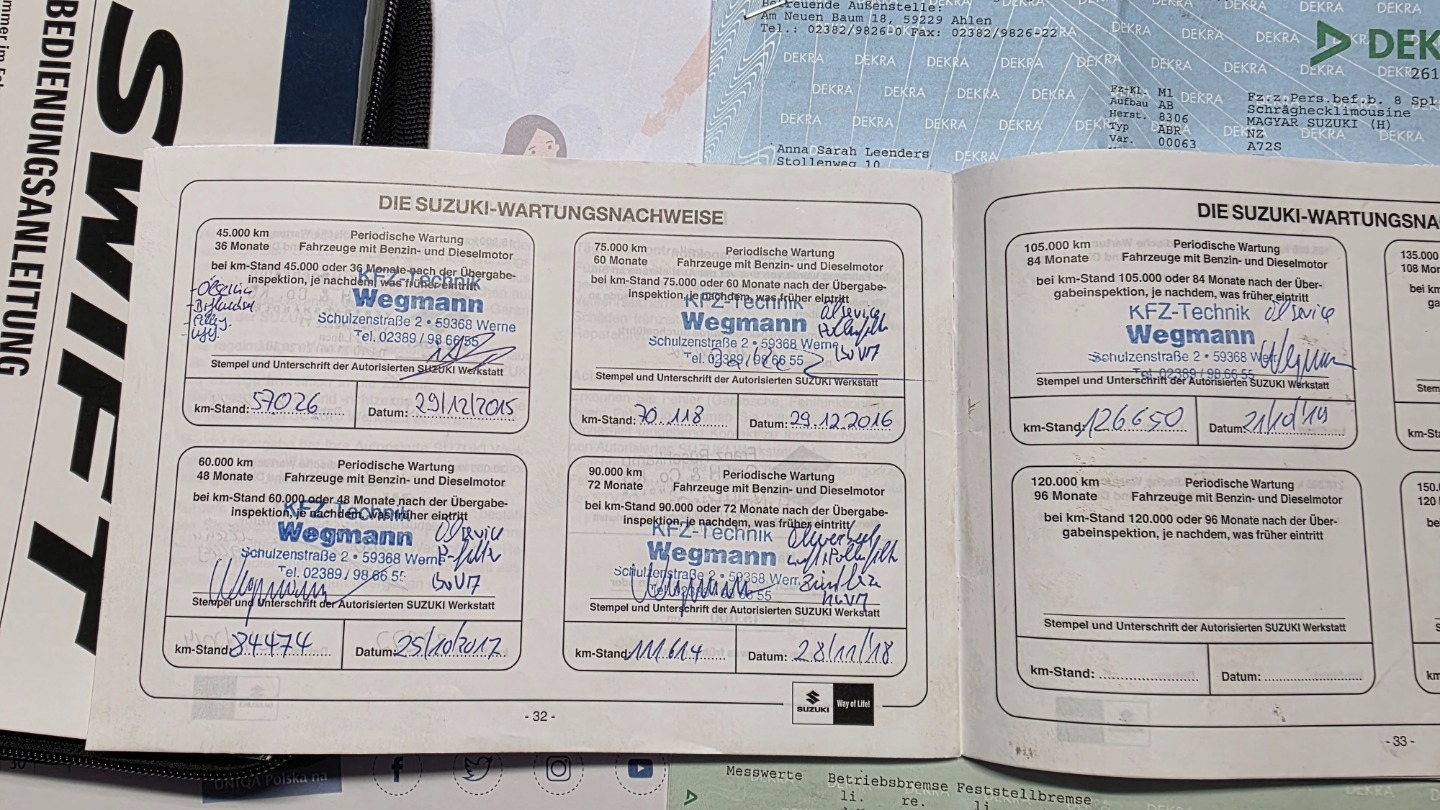 BEDIENUNGSANLEITUNG
SWIFT
Betreuende Außenstelle:
Am Neuen Baum 18, 59229 Ahlen
Tel.: 02382/9826-0 Fax: 02382/9826-22
DEKRA
261
Fz-Kl. M1
Aufbau AB
Herst. 8306
Typ ABR
Var. 00063
Fz.z.Pers.bef.b. 8 Spl
Schräghecklimousine
MAGYAR SUZUKI (H)
NZ
A72S
Anna Sarah Leenders
Stollenweg 10
DIE SUZUKI-WARTUNGSNACHWEISE
45.000 km
36 Monate
Periodische Wartung
Fahrzeuge mit Benzin- und Dieselmotor
bei km-Stand 45.000 oder 36 Monate nach der Übergabe-
inspektion, je nachdem, was früher eintritt
KFZ-Technik
Wegmann
Schulzenstraße 2 • 59368 Werne
Tel. 02389 / 98 66 55
Stempel und Unterschrift der Autorisierten SUZUKI Werkstatt
km-Stand: 57026
Datum: 29/12/2015
60.000 km
48 Monate
Periodische Wartung
Fahrzeuge mit Benzin- und Dieselmotor
bei km-Stand 60.000 oder 48 Monate nach der Übergabe-
inspektion, je nachdem, was früher eintritt
KFZ-Technik
Wegmann
Schulzenstraße 2 • 59368 Werne
Tel. 02389 / 98 66 55
Ölservice
Stempel und Unterschrift der Autorisierten SUZUKI Werkstatt
km-Stand: 84474
Datum: 25/10/2017
75.000 km
60 Monate
Periodische Wartung
Fahrzeuge mit Benzin- und Dieselmotor
bei km-Stand 75.000 oder 60 Monate nach der Übergabe-
inspektion, je nachdem, was früher eintritt
KFZ-Technik
Wegmann
Schulzenstraße 2 • 59368 Werne
Tel. 02389 / 98 66 55
Ölservice
Pollenfilt
Stempel und Unterschrift der Autorisierten SUZUKI Werkstatt
km-Stand: 70.118
Datum: 29.12.2016
90.000 km
72 Monate
Periodische Wartung
Fahrzeuge mit Benzin- und Dieselmotor
bei km-Stand 90.000 oder 72 Monate nach der Übergabe-
inspektion, je nachdem, was früher eintritt
KFZ-Technik
Wegmann
Schulzenstraße 2 • 59368 Wern
55
Stempel und Unterschrift der Autorisierten SUZUKI Werkstatt
km-Stand: 111.614
Datum: 28/11/18
- 32 -
SUZUKI
Way of Life!
DIE SUZUKI-WARTUNGSNA
105.000 km
84 Monate
Periodische Wartung
Fahrzeuge mit Benzin- und Dieselmotor
bei km-Stand 105.000 oder 84 Monate nach der Über-
gabeinspektion, je nachdem, was früher eintritt
KFZ-Technik
Wegmann
Schulzenstraße 2 • 59368 Wer
Tel. 02389 / 98 66 55
Ölservice
Stempel und Unterschrift der Autorisierten SUZUKI Werkstatt
km-Stand: 126650
Datum:
120.000 km
96 Monate
Periodische Wartung
Fahrzeuge mit Benzin- und Dieselmotor
bei km-Stand 120.000 oder 96 Monate nach der Über-
gabeinspektion, je nachdem, was früher eintritt
Stempel und Unterschrift der Autorisierten SUZUKI Werkstatt
km-Stand:
Datum:
135.000
108 Mon
150.0
120
- 33 -
UNIQA Polska na
Messwerte Betriebsbremse Feststellbremse
li. re. li